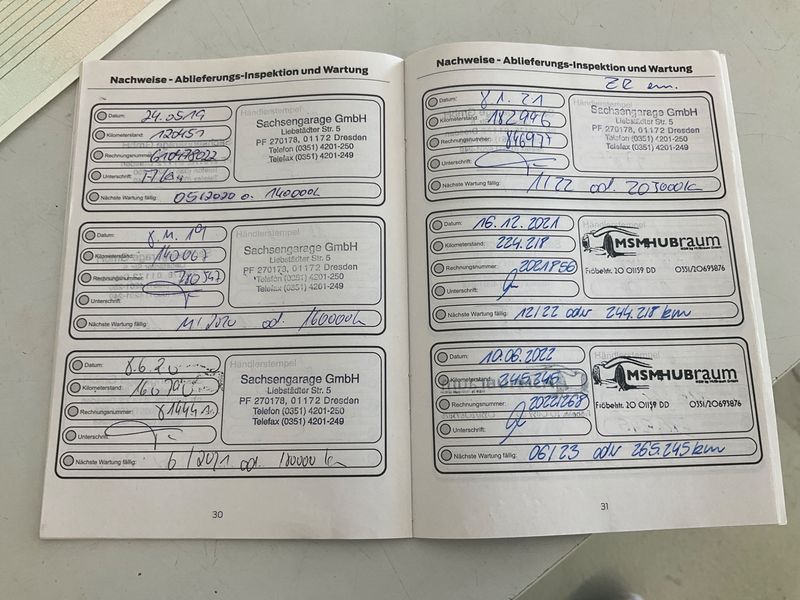 Nachweise - Ablieferungs-Inspektion und Wartung
Datum: 24.05.19
Kilometerstand: 120451
Rechnungsnummer:
Unterschrift:
Nächste Wartung fällig: 05/2020 o. 140000k
Händlerstempel
Sachsengarage GmbH
Liebstädter Str. 5
PF 270178, 01172 Dresden
Telefon (0351) 4201-250
Telefax (0351) 4201-249
Datum: 8.11.19
Kilometerstand: 140067
Rechnungsnummer:
Unterschrift:
Nächste Wartung fällig: 11/2020 od. 160000k
Händlerstempel
Sachsengarage GmbH
Liebstädter Str. 5
PF 270178, 01172 Dresden
Telefon (0351) 4201-250
Telefax (0351) 4201-249
Datum: 8.6.20
Kilometerstand:
Rechnungsnummer:
Unterschrift:
Nächste Wartung fällig: 6/2021 od. 180000 k
Händlerstempel
Sachsengarage GmbH
Liebstädter Str. 5
PF 270178, 01172 Dresden
Telefon (0351) 4201-250
Telefax (0351) 4201-249
30
Nachweise - Ablieferungs-Inspektion und Wartung
ZR ern.
Datum: 8.1.21
Kilometerstand: 182996
Rechnungsnummer:
Unterschrift:
Nächste Wartung fällig: 1/22 od. 203000k
Händlerstempel
Sachsengarage GmbH
Liebstädter Str. 5
PF 270178, 01172 Dresden
Telefon (0351) 4201-250
Telefax (0351) 4201-249
Datum: 16.12.2021
Kilometerstand: 224.218
Rechnungsnummer: 2021856
Unterschrift:
Nächste Wartung fällig: 12/22 oder 244.218 km
Händlerstempel
MSM-HUBraum
Fröbelstr. 20 01159 DD 0351/20693876
Datum: 10.06.2022
Kilometerstand: 245.245
Rechnungsnummer: 2022268
Unterschrift:
Nächste Wartung fällig: 06/23 oder 265.245 km
Händlerstempel
MSM-HUBraum
Fröbelstr. 20 01159 DD 0351/20693876
31